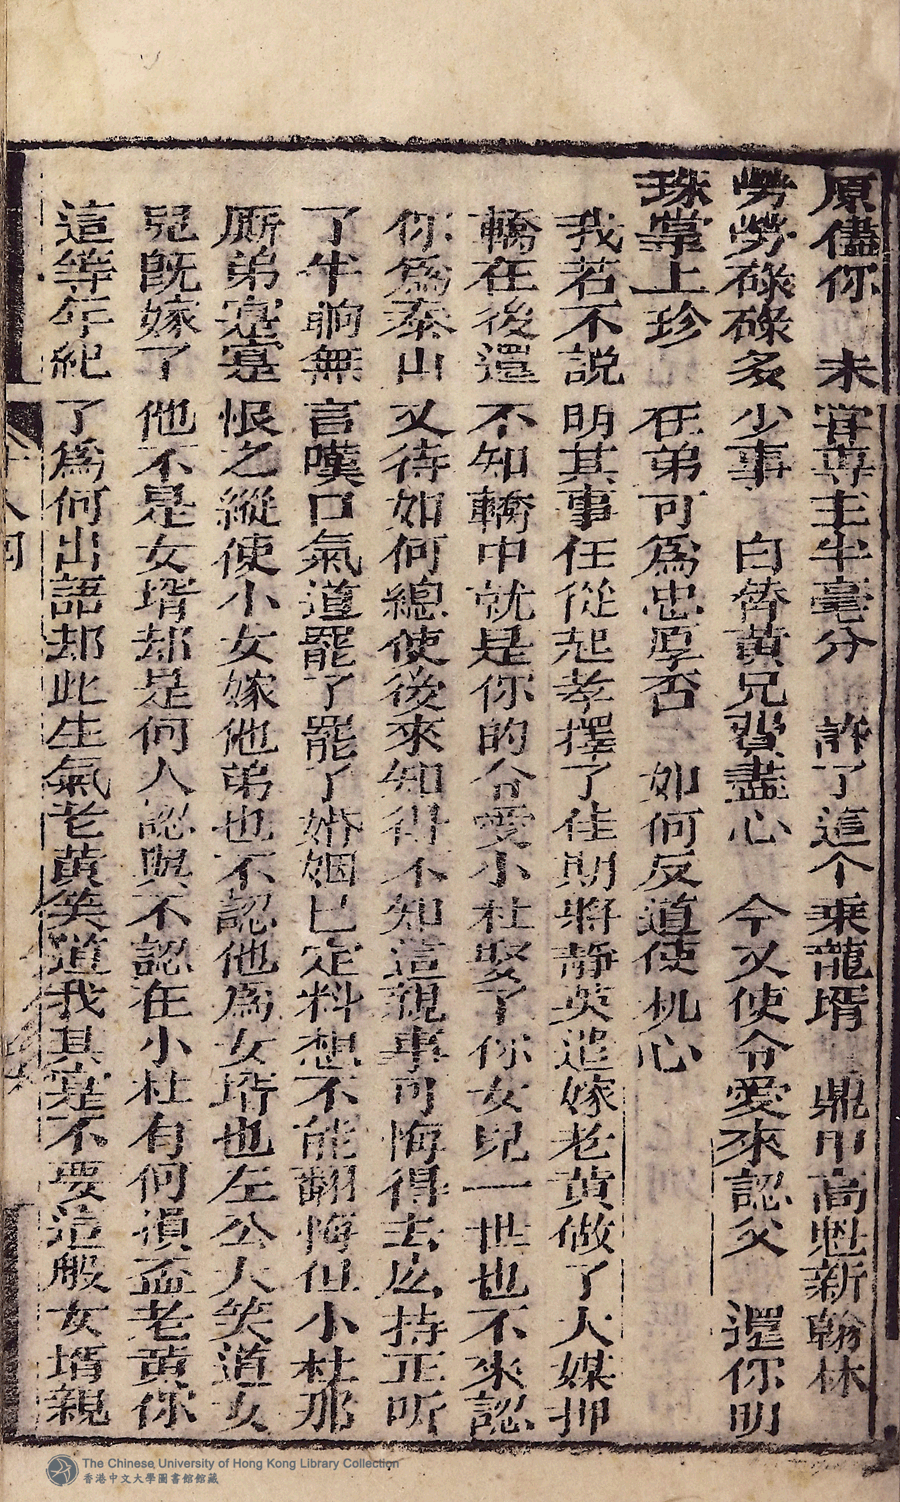 原儘你 未容尊主半毫分 許了這个乘龍壻 鼎甲高魁新翰林
勞勞碌碌多少事 白替黃兄費盡心 今又使令愛來認父 還你明
珠掌上珍 在弟可為忠厚否 如何反道使机心
我若不說明其事任從起孝擇了佳期將靜英遣嫁老黃做了大媒押
轎在後還不知轎中就是你的令愛小杜娶了你女兒一世也不來認
你為泰山又待如何總使後來知得不知這親事可悔得去庅持正听
了半晌無言嘆口氣道罷了罷了婚姻已定料想不能翻悔但小杜那
厮弟寔寔恨之縱使小女嫁他弟也不認他為女壻也左公大笑道女
兒既嫁了他不是女壻却是何人認與不認在小杜有何損益老黃你
這等年紀了為何出語却此生氣老黃笑道我其寔不要這般女壻親
The Chinese University of Hong Kong Library Collection
香港中文大學圖書館館藏